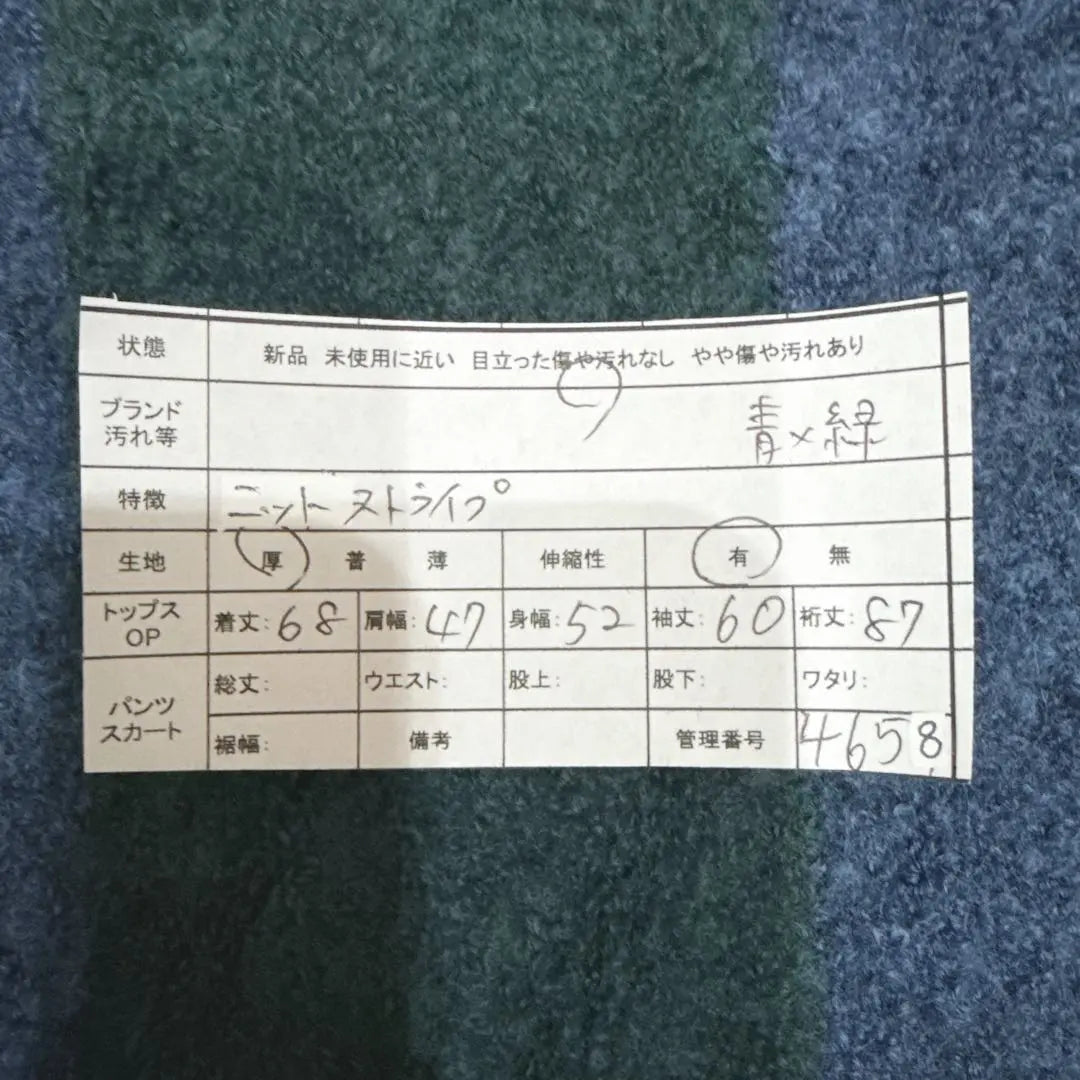 状態 新品 未使用に近い 目立った傷や汚れなし やや傷や汚れあり
ブランド
汚れ等 青×緑
特徴 ニット ストライプ
生地 厚 普 薄 伸縮性 有 無
トップス
OP 着丈:68 肩幅:47 身幅:52 袖丈:60 裄丈:87
パンツ
スカート 総丈: ウエスト: 股上: 股下: ワタリ:
裾幅: 備考 管理番号 4658